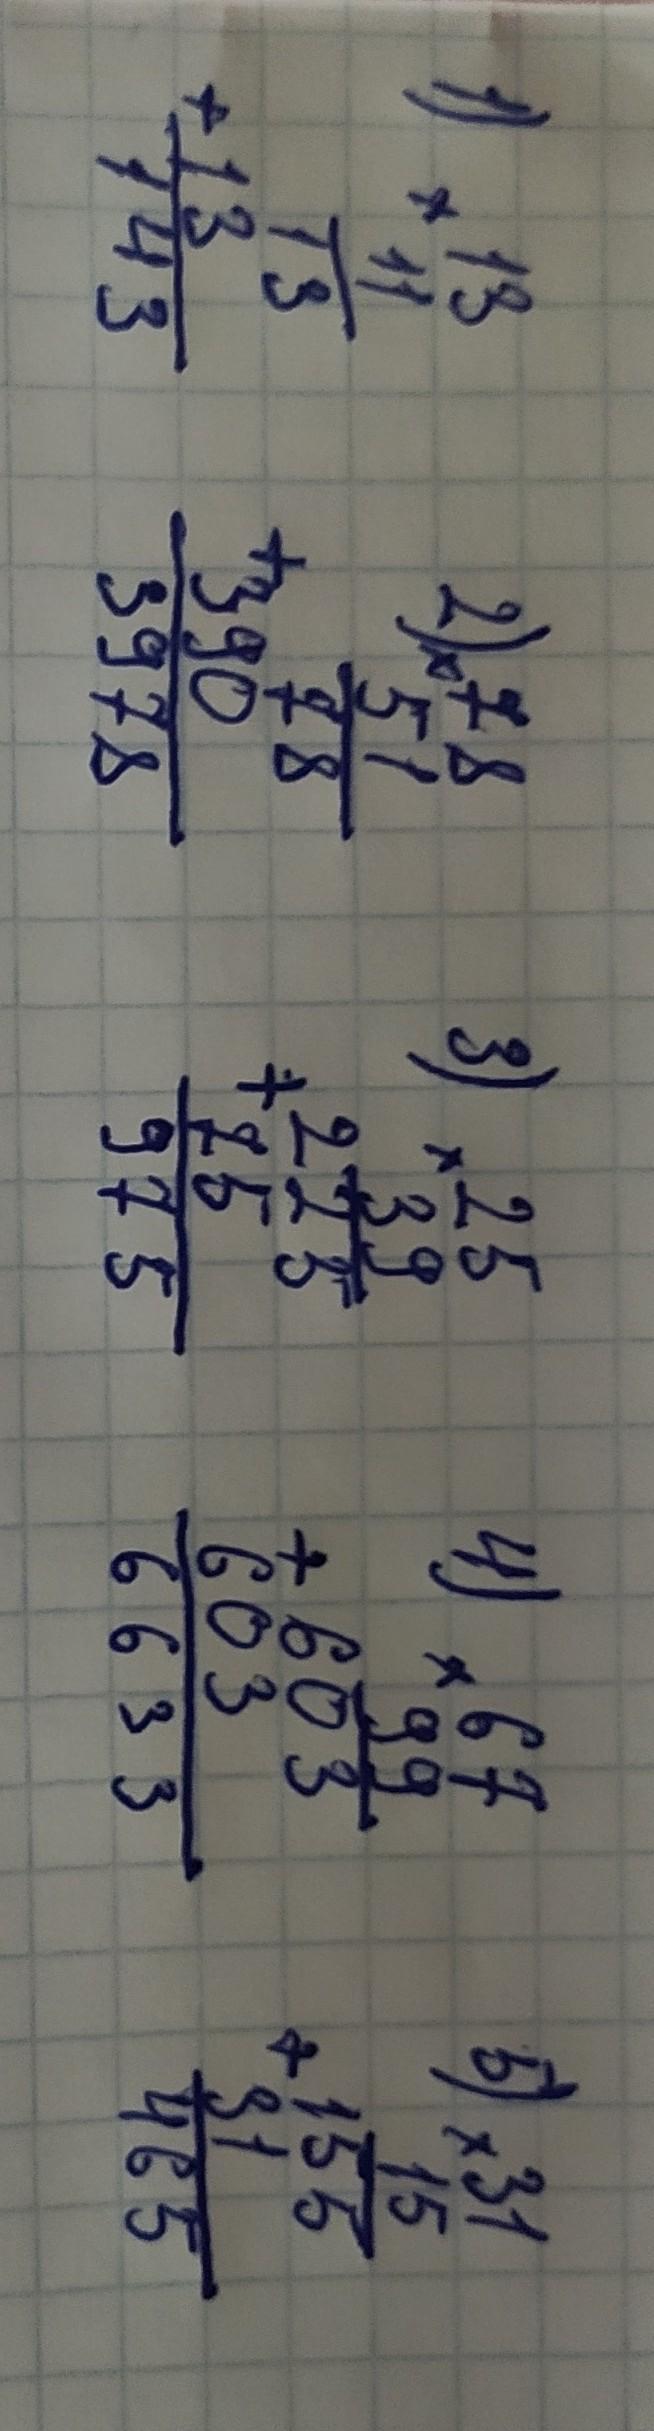 1) × 13
11
13
+ 13
143
2) × 78
51
78
+ 390
3978
3) × 25
39
225
+ 75
975
4) × 67
99
603
+ 603
6633
5) × 31
15
155
+ 31
465